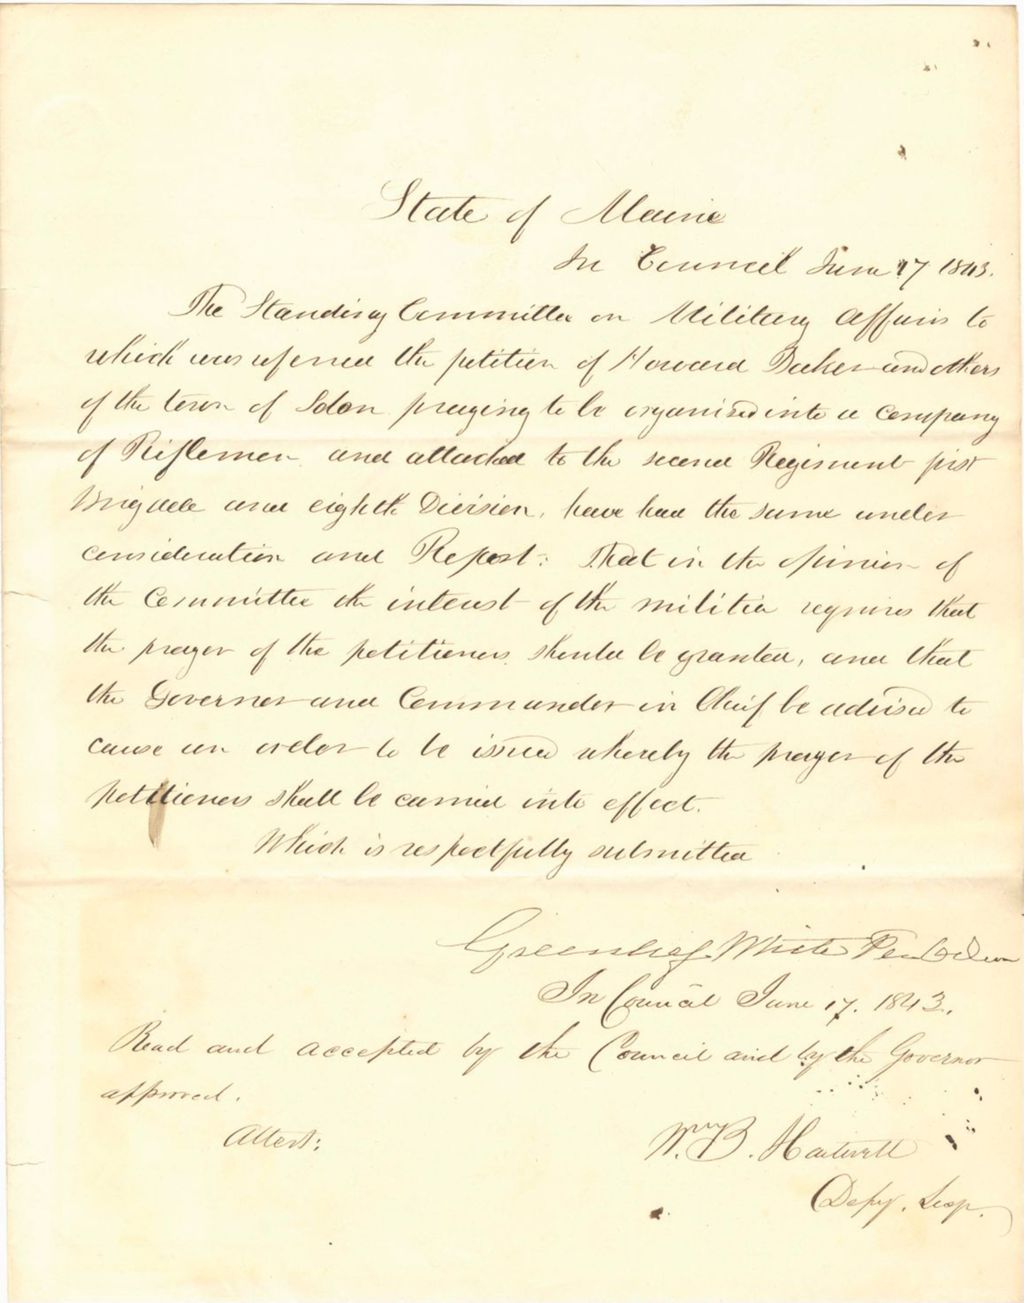 State of Maine
In Council June 17 1843.
The Standing Committee on Military Affairs to
which was referred the petition of Howard Baker and others
of the town of Solon praying to be organised into a company
of Riflemen and attached to the second Regiment first
Brigade and eighth Division, have had the same under
consideration and Report: That in the opinion of
the Committee the interest of the militia requires that
the prayer of the petitioners should be granted, and that
the Governor and Commander in Chief be advised to
cause an order to be issued whereby the prayer of the
petitioners shall be carried into effect.
Which is respectfully submitted
Greenleaf White
In Council June 17. 1843.
Read and accepted by the Council and by the Governor
approved.
Attest:
Wm B. Hartwell
Depy. Secy.